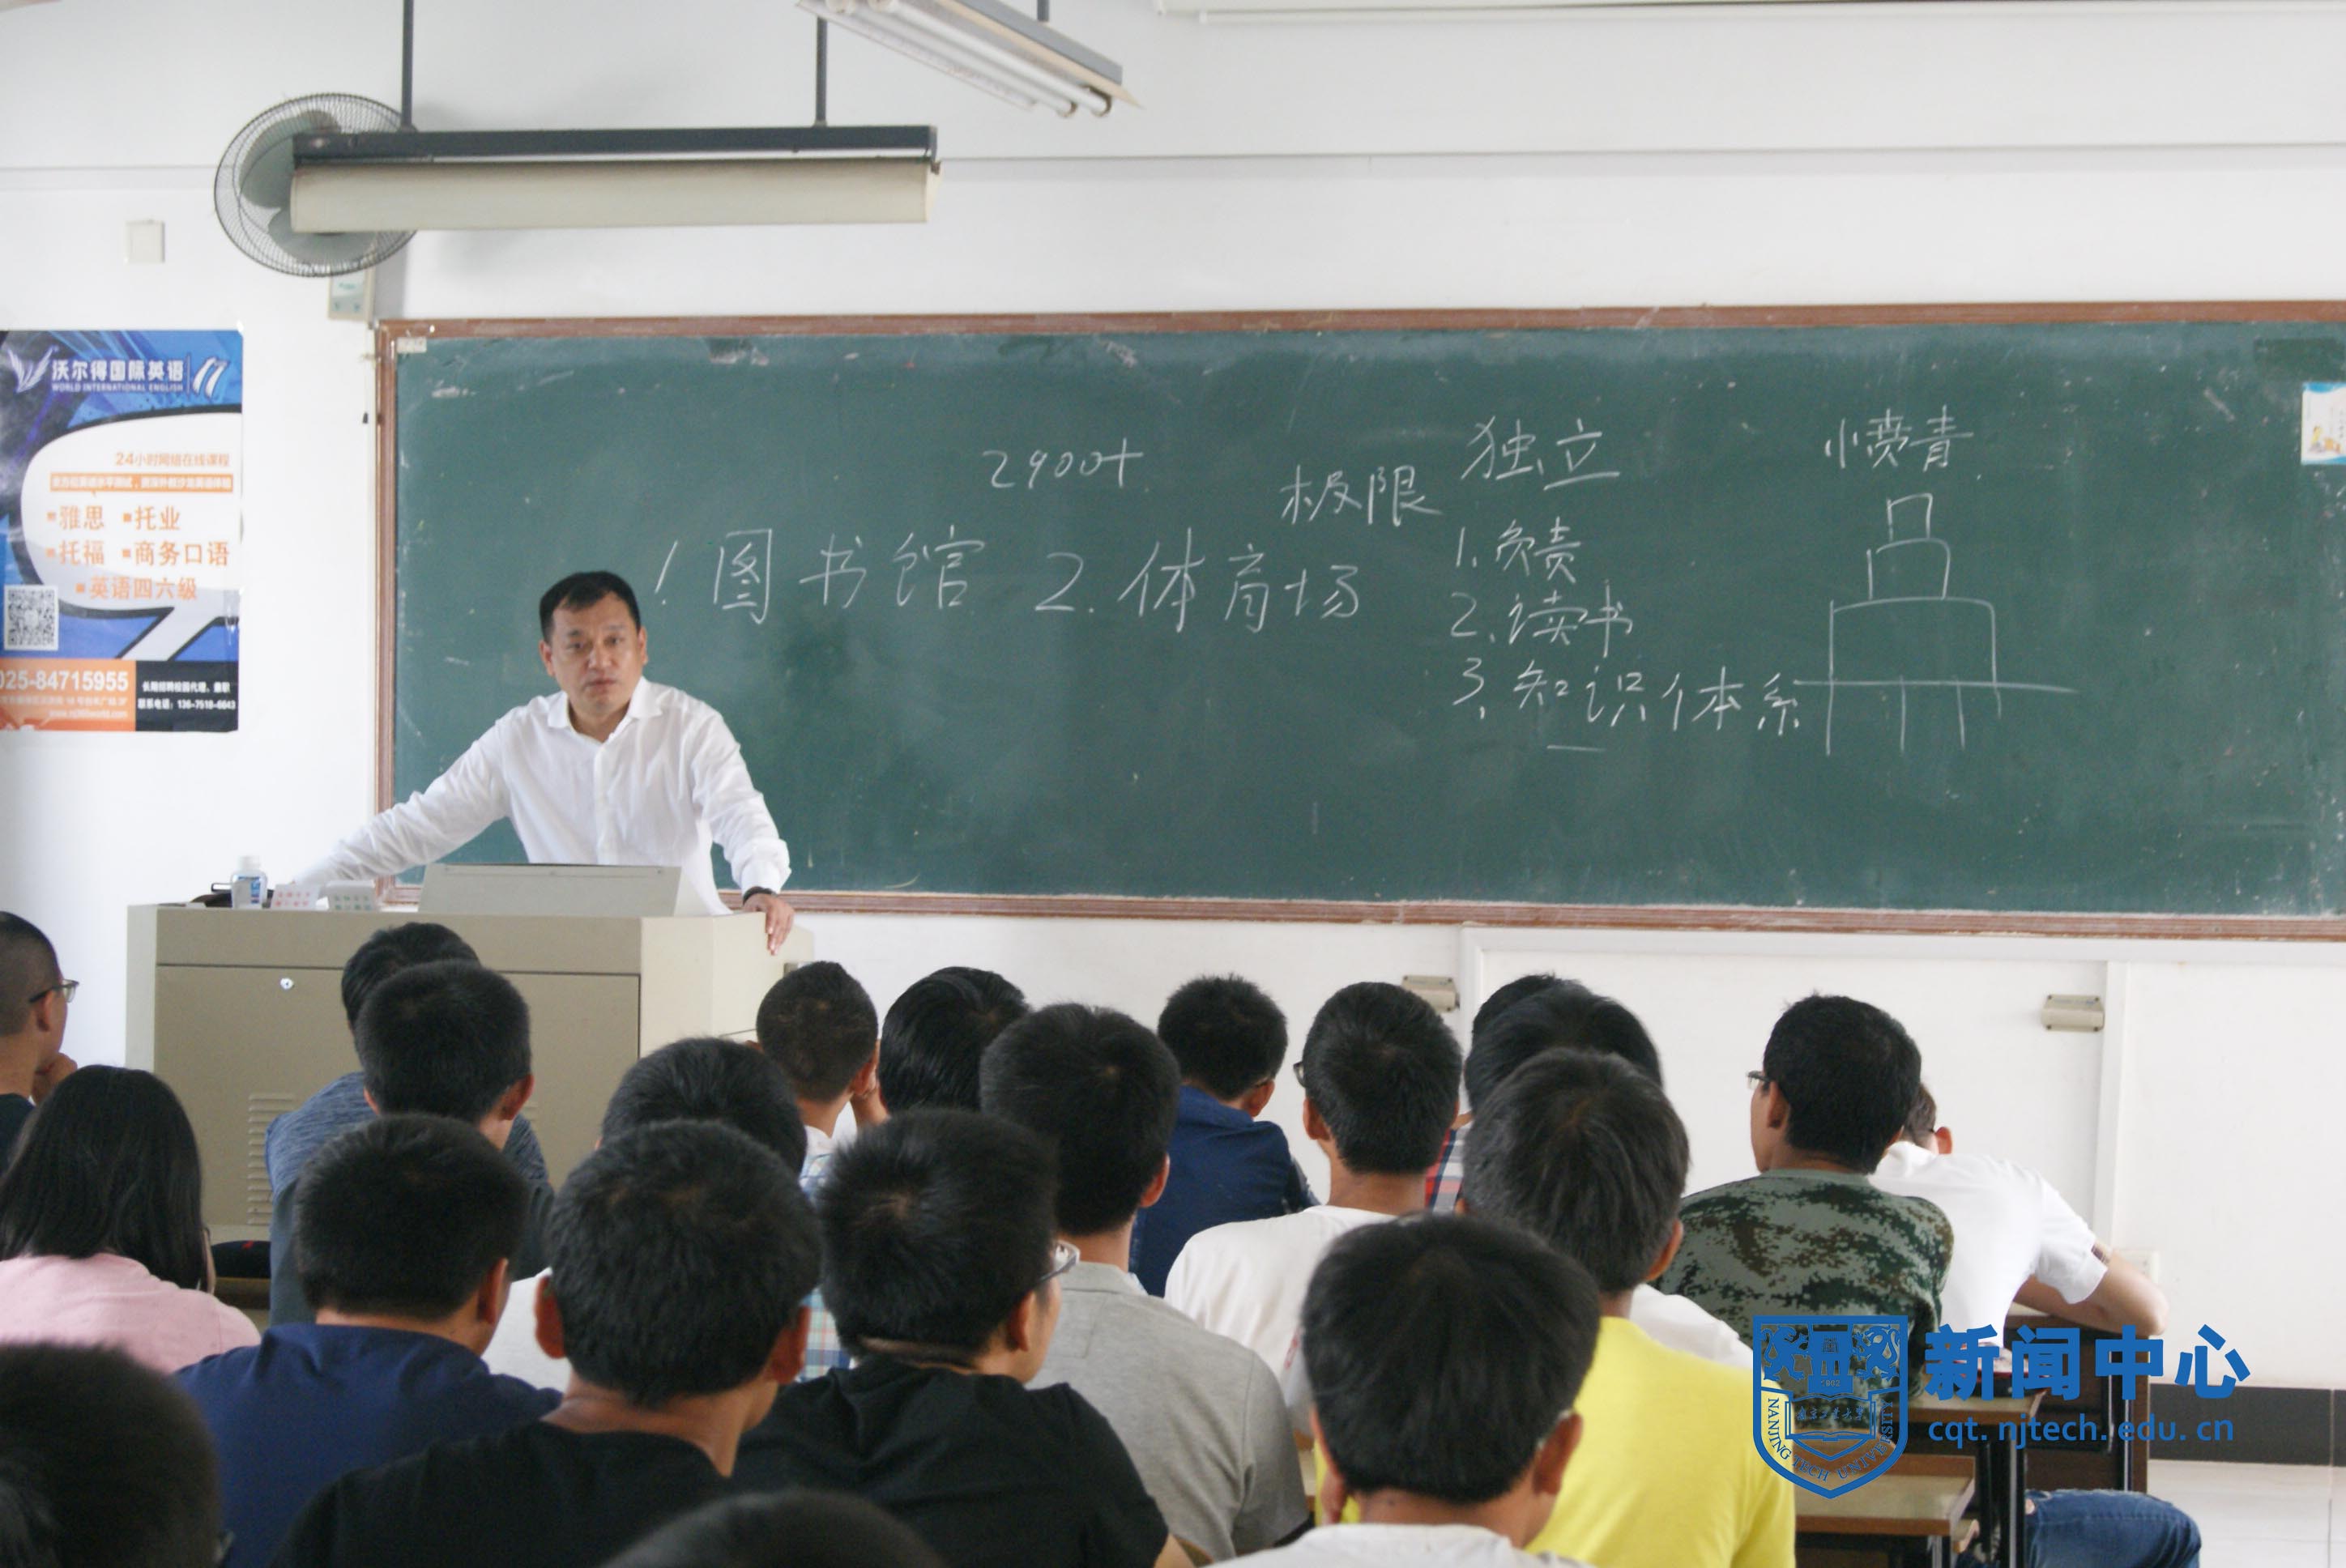 沃尔得国际英语
WORLD INTERNATIONAL ENGLISH
24小时网络在线课程
雅思 托业
托福 商务口语
英语四六级
025-84715955
2900+
1 图书馆 2. 体育场
极限
独立
1. 负责
2. 读书
3. 知识体系
小愤青
新闻中心
cqt.njtech.edu.cn
NANJING TECH UNIVERSITY